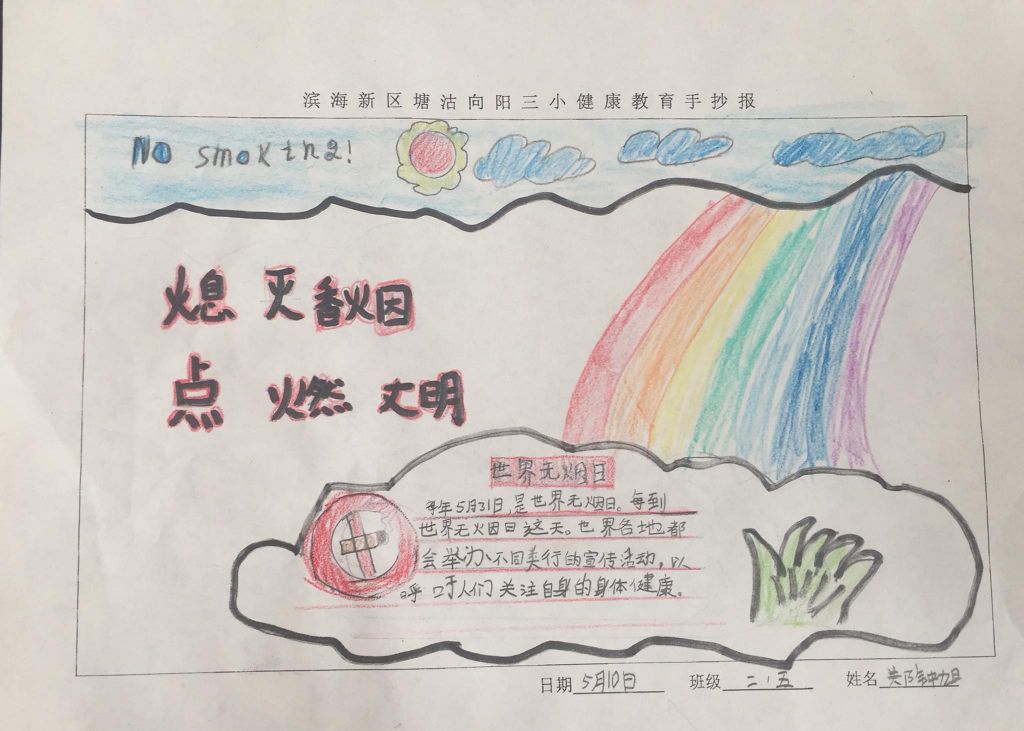 滨海新区塘沽向阳三小健康教育手抄报
No smoking!
熄灭香烟
点燃文明
世界无烟日
每年5月31日,是世界无烟日。每到
世界无烟日这天。世界各地都
会举办不同类行的宣传活动,以
呼吁人们关注自身的身体健康。
日期 5月10日 班级 二.五 姓名